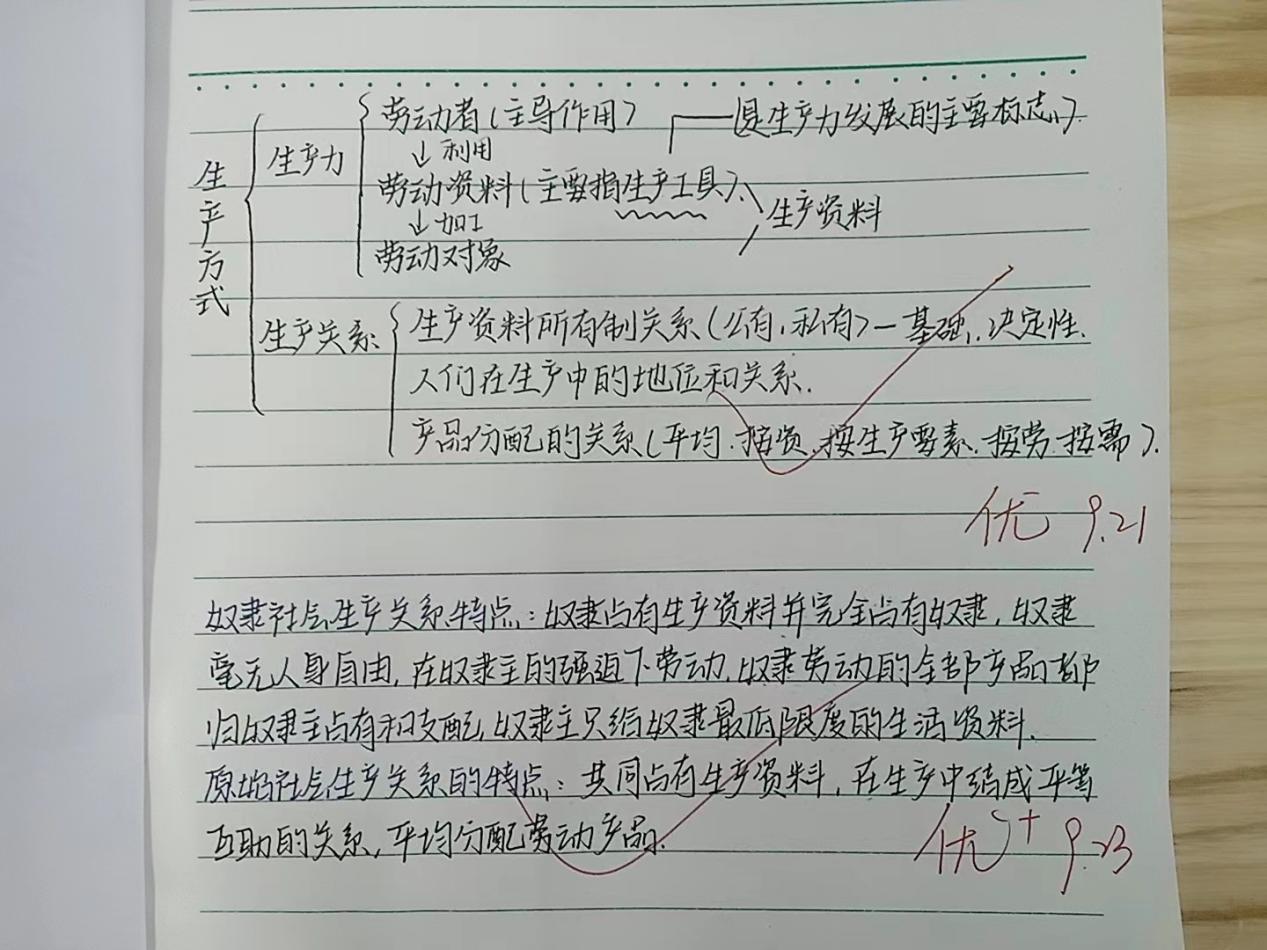 劳动者(主导作用) (是生产力发展的主要标志).
生产力 ↓利用
劳动资料(主要指生产工具).
↓加工 生产资料
劳动对象
生产方式
生产关系 生产资料所有制关系(公有,私有)—基础,决定性.
人们在生产中的地位和关系.
产品分配的关系(平均.按资.按生产要素.按劳.按需).
优 9.21
奴隶社会生产关系特点:奴隶占有生产资料并完全占有奴隶,奴隶
毫无人身自由,在奴隶主的强迫下劳动,奴隶劳动的全部产品都
归奴隶主占有和支配,奴隶主只给奴隶最低限度的生活资料.
原始社会生产关系的特点:共同占有生产资料,在生产中结成平等
互助的关系,平均分配劳动产品.
优+ 9.23